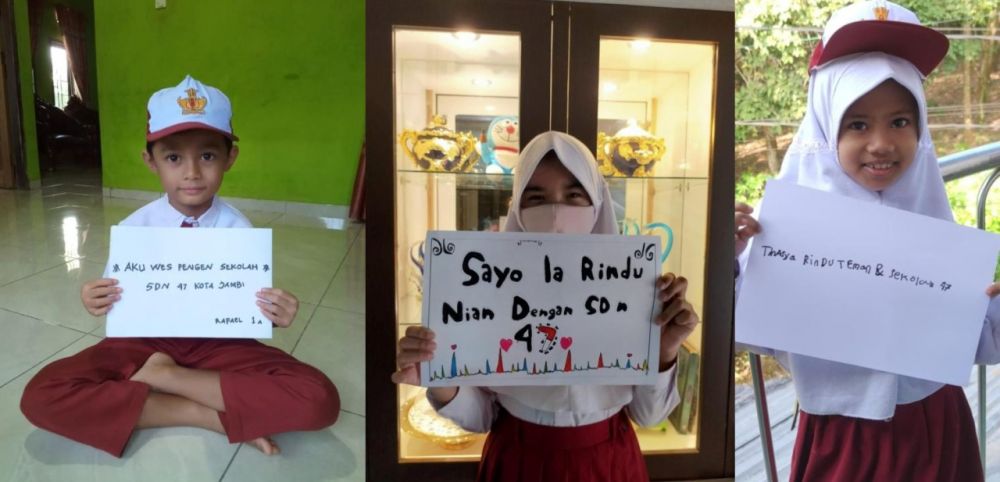 * AKU WES PENGEN SEKOLAH *
SDN 47 KOTA JAMBI
RAFAEL 1A
Sayo la Rindu
Nian Dengan SD N
47
TAnAsya RinDU TEMAN & SEkOLAH 47